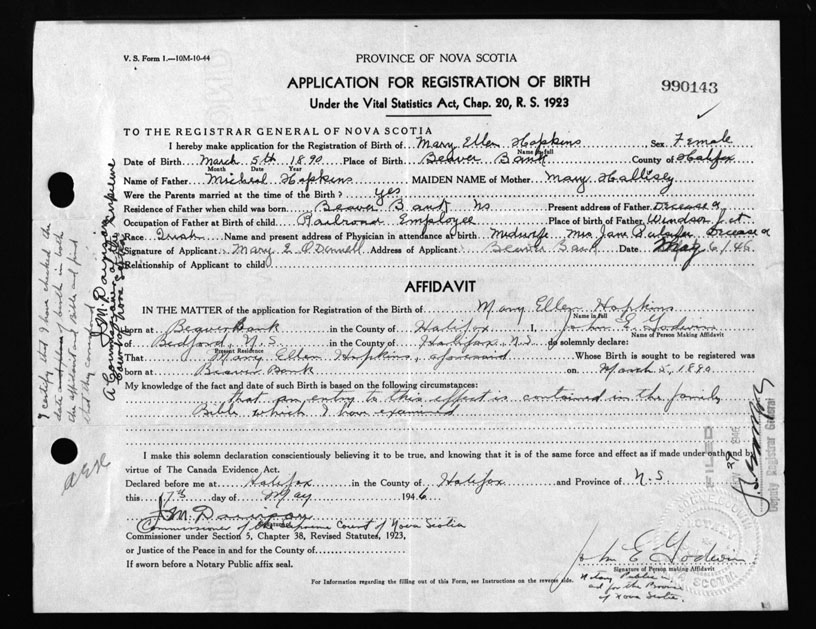 V. S. Form 1.—10M-10-44
PROVINCE OF NOVA SCOTIA
APPLICATION FOR REGISTRATION OF BIRTH
990143
Under the Vital Statistics Act, Chap. 20, R. S. 1923
TO THE REGISTRAR GENERAL OF NOVA SCOTIA
I hereby make application for the Registration of Birth of Mary Ellen Hopkins Sex Female
Name in full
Date of Birth March 5th 1890 Place of Birth Beaver Bank County of Halifax
Month Date Year
Name of Father Michael Hopkins MAIDEN NAME of Mother Mary Hallisey
Were the Parents married at the time of the Birth? yes
Residence of Father when child was born Beaver Bank NS Present address of Father Deceased
Occupation of Father at Birth of child Railroad Employee Place of birth of Father Windsor Jct.
Race Irish Name and present address of Physician in attendance at birth Midwife Mrs Jane Deceased
Signature of Applicant Mary E. O'Donnell Address of Applicant Beaver Bank Date May 6/46
Relationship of Applicant to child
AFFIDAVIT
IN THE MATTER of the application for Registration of the Birth of Mary Ellen Hopkins
Name in full
born at Beaver Bank in the County of Halifax I, John E. Godwin
Name of Person Making Affidavit
of Bedford, N.S. in the County of Halifax, N.S. do solemnly declare:
Present Residence
That Mary Ellen Hopkins, aforesaid Whose Birth is sought to be registered was
born at Beaver Bank on March 5, 1890
My knowledge of the fact and date of such Birth is based on the following circumstances:
that an entry to this effect is contained in the family
Bible which I have examined
I make this solemn declaration conscientiously believing it to be true, and knowing that it is of the same force and effect as if made under oath and by
virtue of The Canada Evidence Act.
Declared before me at Halifax in the County of Halifax and Province of N.S.
this 17th day of May 1946
J. M. Davison
Commissioner of the Supreme Court of Nova Scotia
Commissioner under Section 5, Chapter 38, Revised Statutes, 1923,
or Justice of the Peace in and for the County of
If sworn before a Notary Public affix seal.
John E Godwin
Signature of Person making Affidavit
Notary Public in
and for the Province
of Nova Scotia.
For Information regarding the filling out of this Form, see Instructions on the reverse side.
I certify that I have checked the
date and place of birth in both
the affidavit and Bible and find
that they correspond
J. M. Davison
A Commissioner of the Supreme
Court of Nova Scotia
FILED
Deputy Registrar General